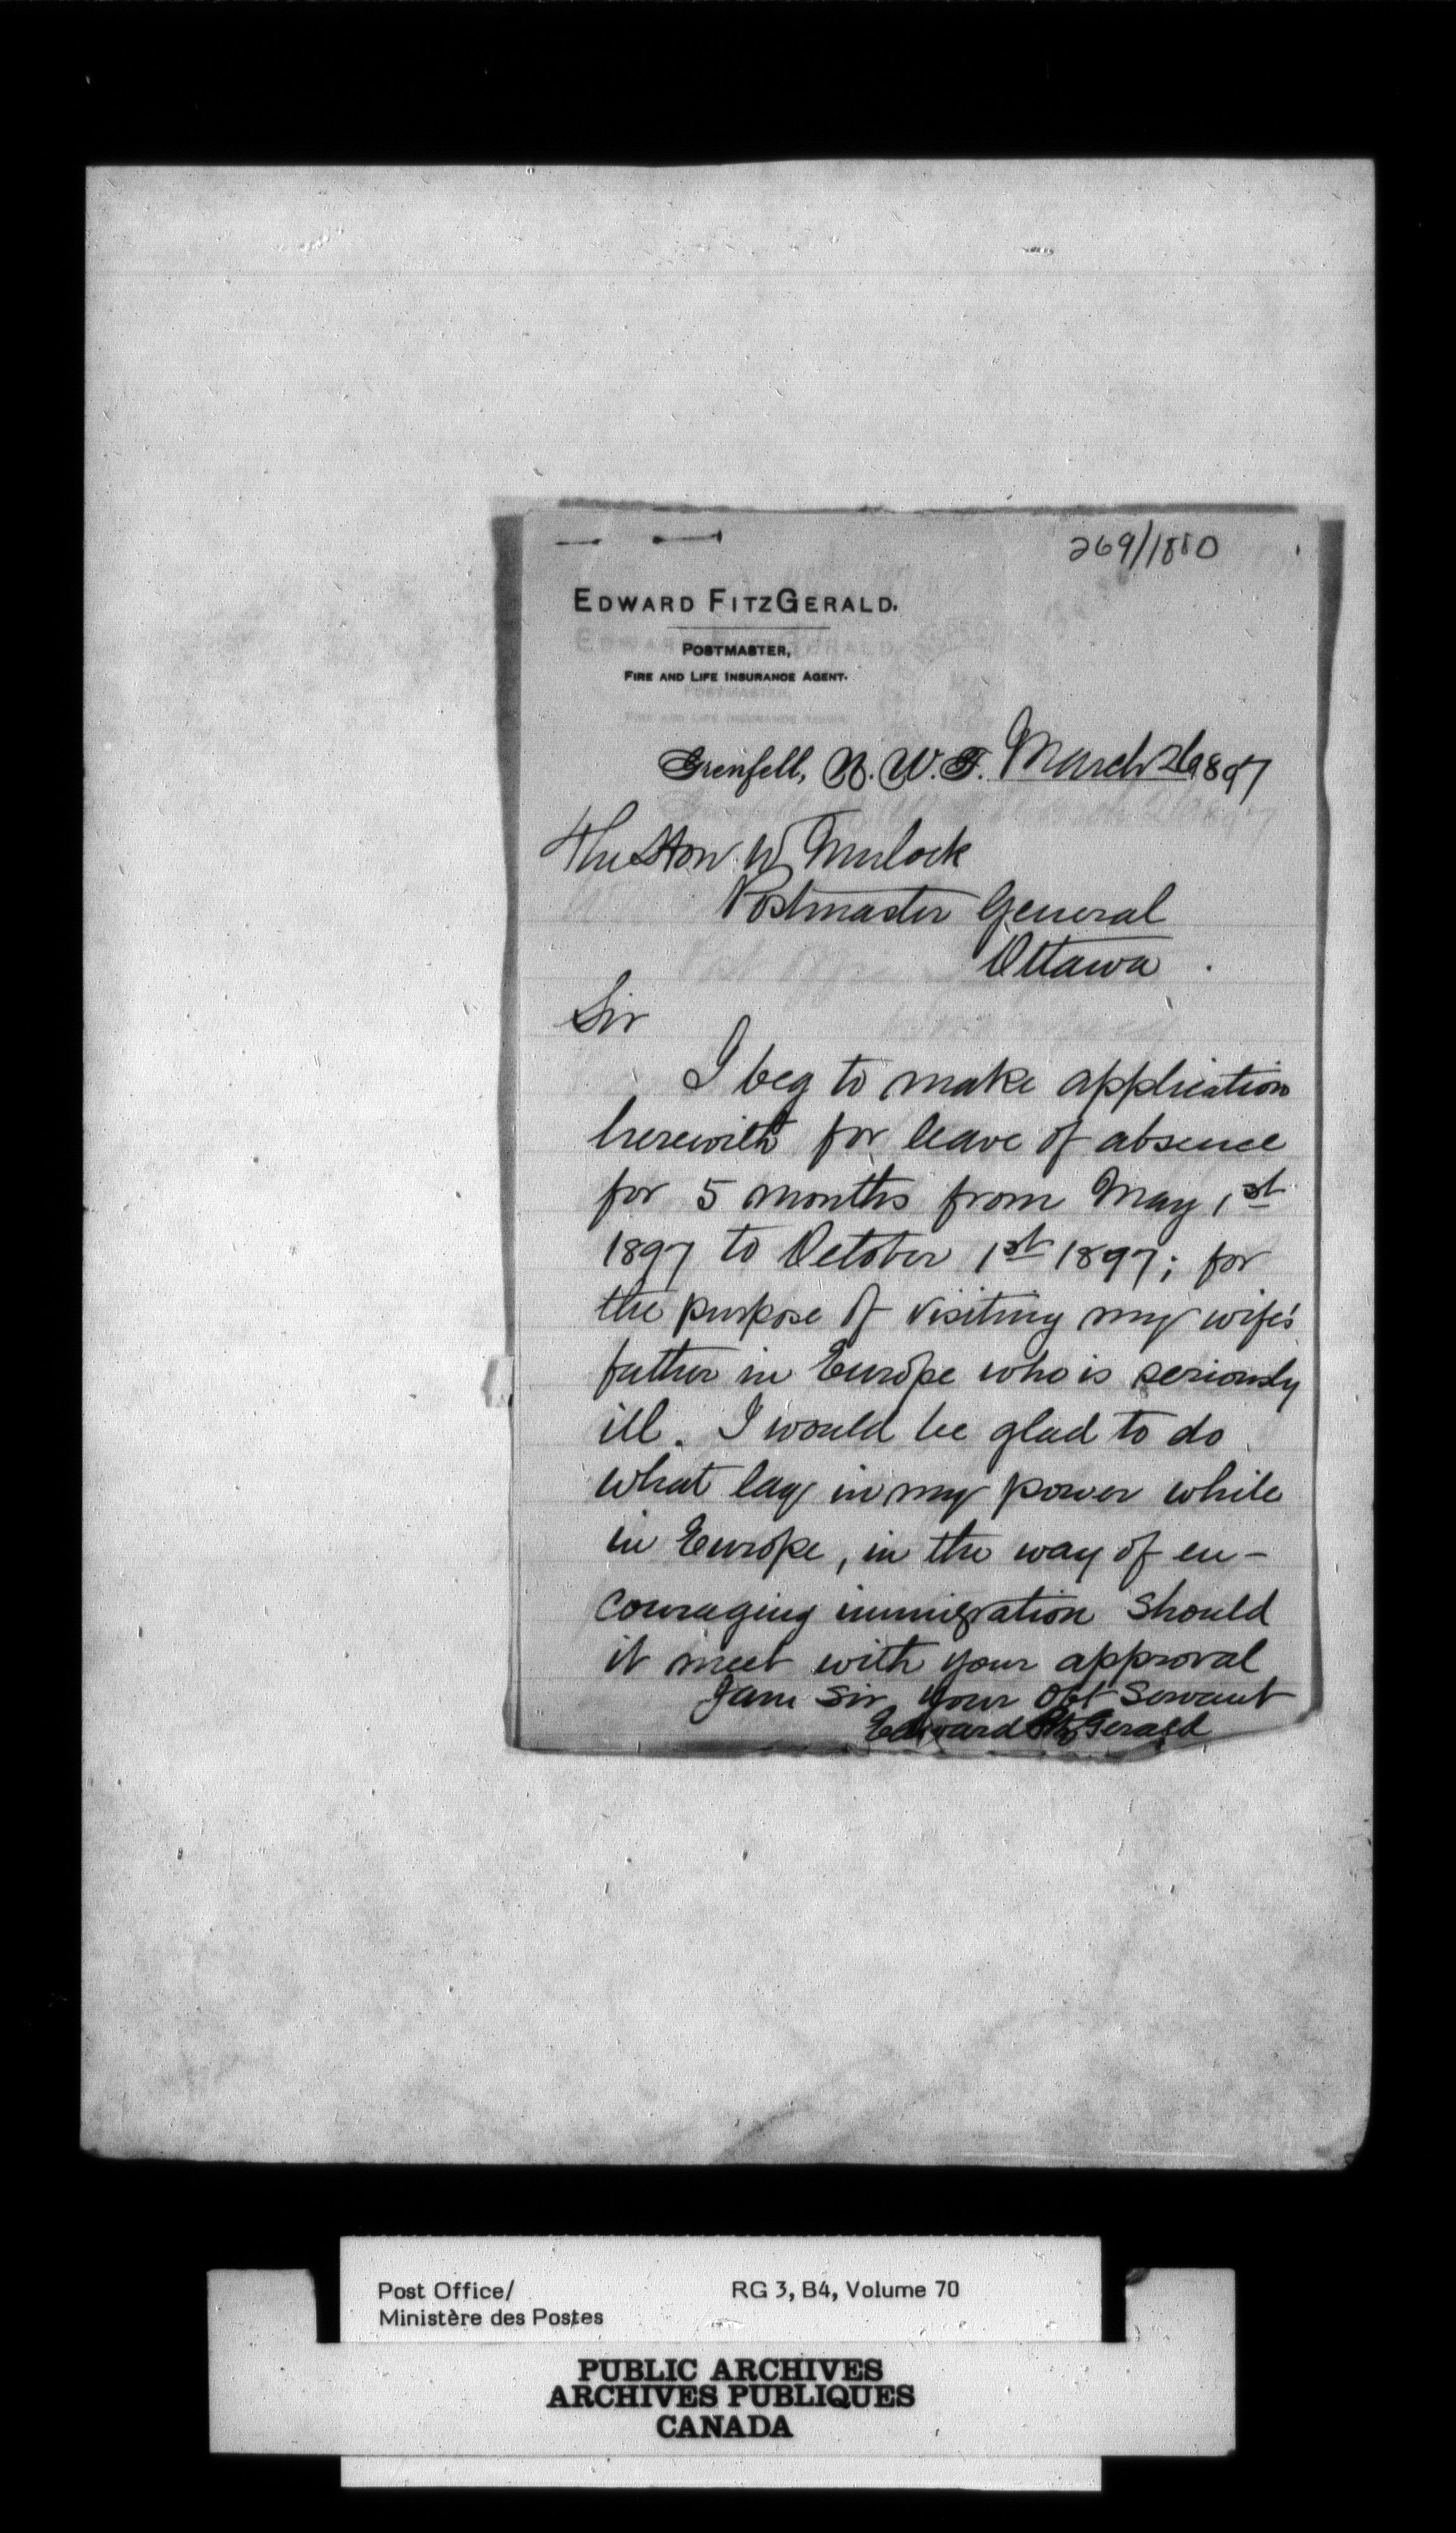 269/1880
EDWARD FITZGERALD.
POSTMASTER,
FIRE AND LIFE INSURANCE AGENT.
Grenfell, N. W. T. March 26 1897
The Hon. W Mulock
Postmaster General
Ottawa.
Sir
I beg to make application
herewith for leave of absence
for 5 months from May 1st
1897 to October 1st 1897; for
the purpose of visiting my wife's
father in Europe who is seriously
ill. I would be glad to do
what lay in my power while
in Europe, in the way of en-
couraging immigration should
it meet with your approval
I am Sir, your Obt Servant
Edward FitzGerald
Post Office/ RG 3, B4, Volume 70
Ministère des Postes
PUBLIC ARCHIVES
ARCHIVES PUBLIQUES
CANADA